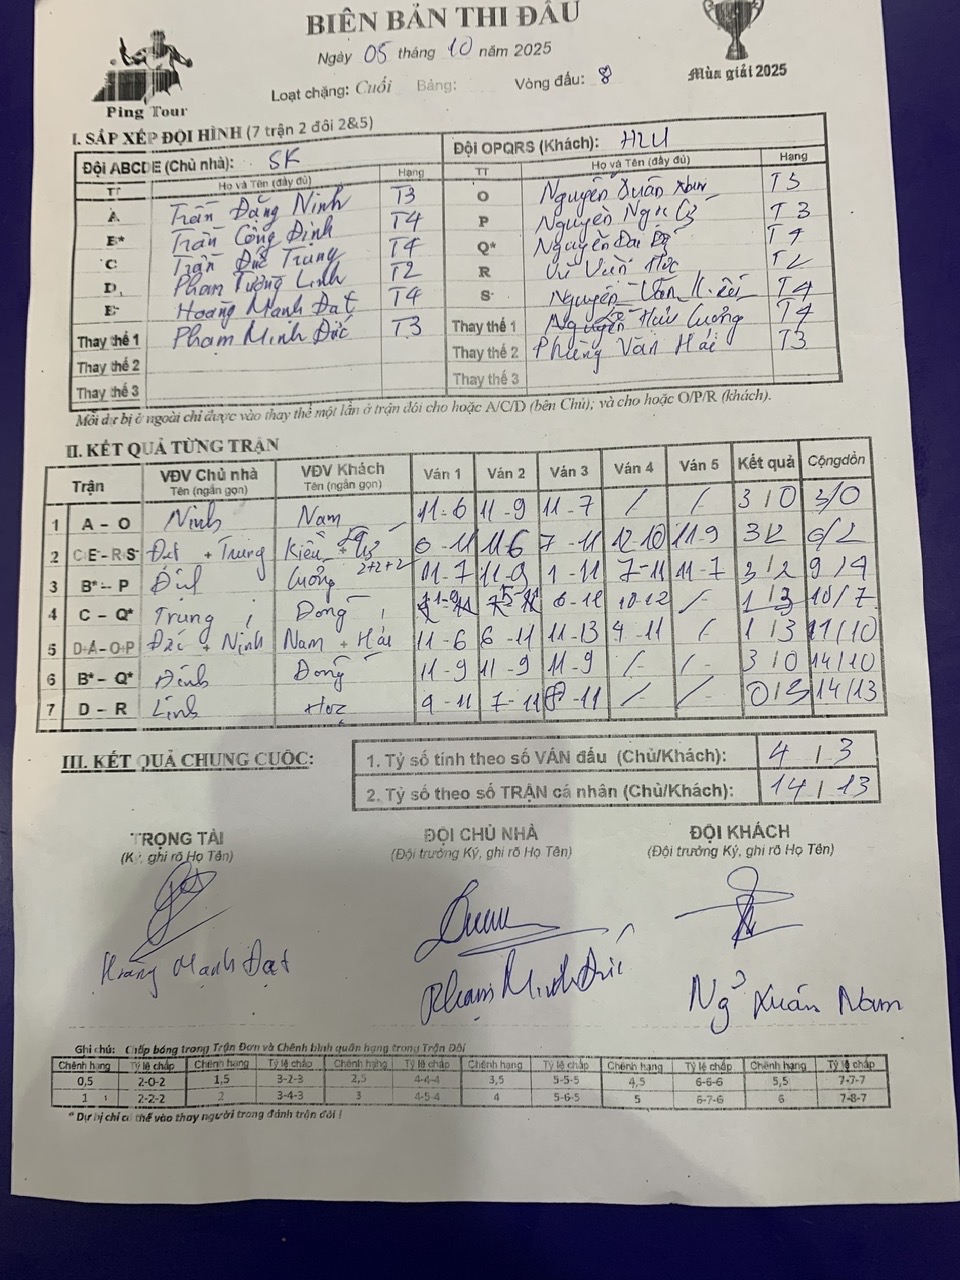 BIÊN BẢN THI ĐẤU
Ngày 05 tháng 10 năm 2025
Loạt chặng: Cuối Bảng: Vòng đấu: 8
Ping Tour
Mùa giải 2025
I. SẮP XẾP ĐỘI HÌNH (7 trận 2 đôi 2&5)
Đội ABCDE (Chủ nhà): SK Đội OPQRS (Khách): H2U
TT Họ và Tên (đầy đủ) Hạng TT Họ và Tên (đầy đủ) Hạng
A Trần Đăng Ninh T3 O Nguyễn Xuân Nam T3
B* Trần Công Định T4 P Nguyễn Ngọc T3
C Trần Đức Trung T4 Q* Nguyễn T4
D Phạm Tường Linh T2 R T2
E Hoàng Mạnh Đạt T4 S Nguyễn Văn T4
Thay thế 1 Phạm Minh Đức T3 Thay thế 1 Nguyễn Hữu Cường T4
Thay thế 2 Thay thế 2 Phùng Văn Hải T3
Thay thế 3 Thay thế 3
Mỗi dự bị ở ngoài chỉ được vào thay thế một lần ở trận đôi cho hoặc A/C/D (bên Chủ); và cho hoặc O/P/R (khách).
II. KẾT QUẢ TỪNG TRẬN
Trận VĐV Chủ nhà Tên (ngắn gọn) VĐV Khách Tên (ngắn gọn) Ván 1 Ván 2 Ván 3 Ván 4 Ván 5 Kết quả Cộng dồn
1 A - O Ninh Nam 11-6 11-9 11-7 / / 3/0 3/0
2 C+E - R+S Đạt + Trung Kiều + 6-11 11-6 7-11 12-10 11-9 3/2 6/2
3 B* - P Định Cường 2+2+2 11-7 11-9 1-11 7-11 11-7 3/2 9/4
4 C - Q* Trung Đông 6-11 10-12 / 1/3 10/7
5 D+A - O+P Đức + Ninh Nam + Hải 11-6 6-11 11-13 4-11 / 1/3 11/10
6 B* - Q* Định Đông 11-9 11-9 11-9 / / 3/0 14/10
7 D - R Linh 9-11 7-11 8-11 / / 0/3 14/13
III. KẾT QUẢ CHUNG CUỘC:
1. Tỷ số tính theo số VÁN đấu (Chủ/Khách): 4/3
2. Tỷ số theo số TRẬN cá nhân (Chủ/Khách): 14/13
TRỌNG TÀI ĐỘI CHỦ NHÀ ĐỘI KHÁCH
(Ký, ghi rõ Họ Tên) (Đội trưởng Ký, ghi rõ Họ Tên) (Đội trưởng Ký, ghi rõ Họ Tên)
Hoàng Mạnh Đạt Phạm Minh Đức Ng~ Xuân Nam
Ghi chú: Chấp bóng trong Trận Đơn và Chênh bình quân hạng trong Trận Đôi
Chênh hạng Tỷ lệ chấp Chênh hạng Tỷ lệ chấp Chênh hạng Tỷ lệ chấp Chênh hạng Tỷ lệ chấp Chênh hạng Tỷ lệ chấp Chênh hạng Tỷ lệ chấp
0,5 2-0-2 1,5 3-2-3 2,5 4-4-4 3,5 5-5-5 4,5 6-6-6 5,5 7-7-7
1 2-2-2 2 3-4-3 3 4-5-4 4 5-6-5 5 6-7-6 6 7-8-7
* Dự bị chỉ có thể vào thay người trong đánh trận đôi !